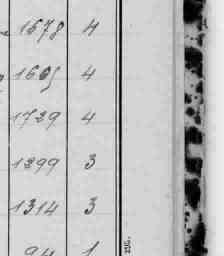 1678 4
1605 4
1729 4
1299 3
1314 3
94 1